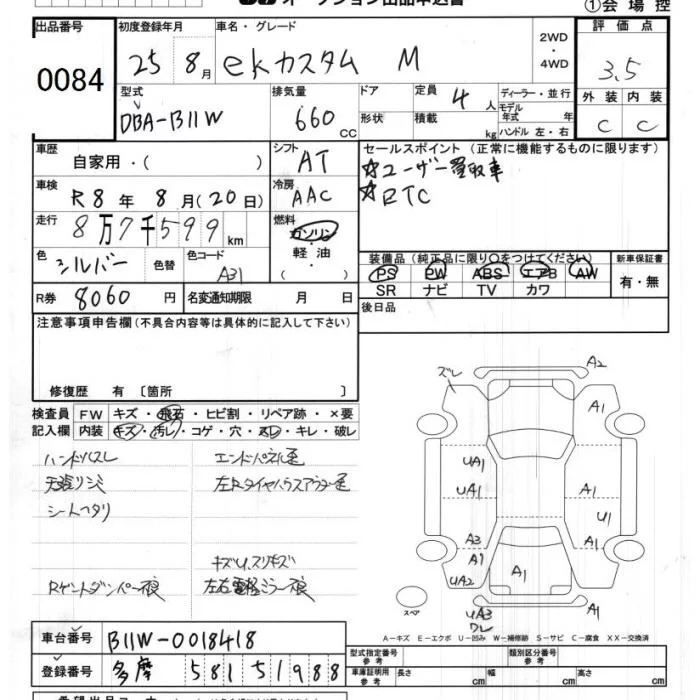 オークション出品申込書
①会場控
出品番号 初度登録年月 車名・グレード 評価点
0084 25 8月 ekカスタム M 2WD・4WD 3.5
型式 排気量 ドア 定員 ディーラー・並行 外装 内装
DBA-B11W 660 CC 4人 モデル年式 年 C C
形状 積載 kg ハンドル 左・右
車歴 自家用・( ) シフト AT セールスポイント (正常に機能するものに限ります)
☆ユーザー買取車
車検 R8年 8月(20日) 冷房 AAC ☆ETC
走行 8万7千599km 燃料 ガソリン・軽油・( )
色 シルバー 色替 色コード A31 装備品 (純正品に限り○をつけてください) 新車保証書
PS PW ABS エアB AW 有・無
SR ナビ TV カワ
R券 8060円 名変通知期限 月 日 後日品
注意事項申告欄(不具合内容等は具体的に記入して下さい)
修復歴 有〔箇所 〕
検査員記入欄 FW キズ・飛石・ヒビ割・リペア跡・×要
内装 キズ・汚レ・コゲ・穴・スレ・キレ・破レ
ハンドルスレ エンドパネル歪
天張りシミ 左Rタイヤハウスアウター歪
シートヘタリ
キズU.スリキズ
Rゲートダンパー痕 左右電軽ミラー痕
ズレ A2
A1
UA1
UA1 A1
U1
A3 A1
A1
UA2 A1
スペア UA3 ワレ A1
A−キズ E−エクボ U−凹み W−補修跡 S−サビ C−腐食 XX−交換済
車台番号 B11W-0018418
登録番号 多摩 581 51988
型式指定番号 参考 類別区分番号 参考
車庫証明用 参考 長さ cm 幅 cm 高さ cm